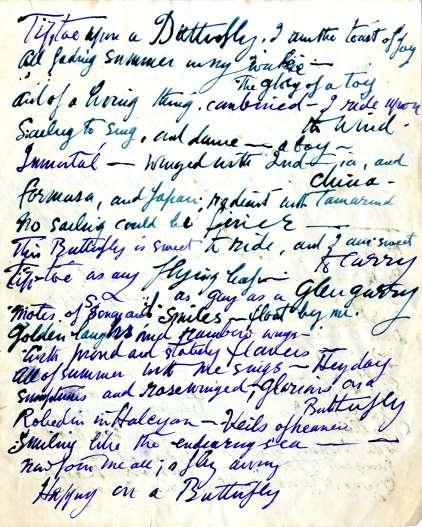 Tiptoe upon a Butterfly, I am the toast of joy
all fading summer in my
The glory of a toy
and of a living thing, combined - I ride upon
the Wind -
Sailing to sing, and dance - a boy -
Immortal - winged with Ind - ia, and
China -
formosa, and Japan; radiant with Tamarind
No sailing could be finer -
This Butterfly is sweet to ride, and I am sweet
to carry
Tip-toe as any flying leaf -
as gay as a Glengarry
Motes of song and smiles - float by me.
Golden laughs and rainbow wings -
With proud and stately flowers
All of summer with me sings - Heyday
sumptuous and rosewinged, Glorious on a
Butterfly
Robed in Halcyon - Veils of heaven
Smiling like the endearing sea -
now join me all; is fly away
Happy on a Butterfly